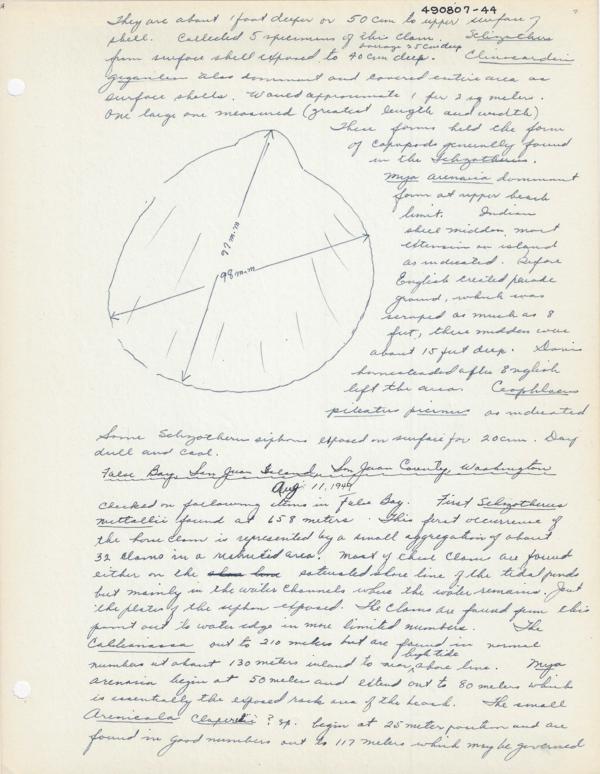 490807-44
They are about 1 foot deeper or 50 cm to upper surface of
shell. Collected 5 specimens of this clam. Schizothaerus
average 25 cm deep
from surface shell exposed to 40 cm deep. Clinocardium
giganteum also dominant and covered entire area as
surface shells. Would approximate 1 per 2 sq meters.
One large one measured (greatest length and width)
These forms held the form
of copepods generally found
in the Schizotherus.
97 m.m
98 m.m
Mya arenaria dominant
form at upper beach
limit. Indian
shell midden most
extensive on island
as indicated. Before
English created parade
ground, which was
scraped as much as 8
feet, these middens were
about 15 feet deep. Davis
homesteaded after English
left the area. Ceophloeus
pileatus picinus as indicated
Some Schizotherus siphons exposed on surface for 20 cm. Day
dull and cool.
False Bay, San Juan Island, San Juan County, Washington
Aug 11, 1949
Checked on following items in False Bay. First Schizotherus
nuttallii found at 658 meters. This first occurrence of
the horse clam is represented by a small aggregation of about
32 clams in a restricted area. Most of these clams are found
either on the saturated shore line of the tidal ponds
but mainly in the water channels where the water remains. Just
the plates of the siphon exposed. The clams are found from this
point out to water edge in more limited numbers. The
Callianassa out to 210 meters but are found in normal
high tide
numbers at about 130 meters inland to near shore line. Mya
arenaria begin at 50 meters and extend out to 80 meters which
is essentially the exposed rock area of the beach. The small
Arenicola ? sp. begin at 25 meter position and are
found in good numbers out to 117 meters which may be governed